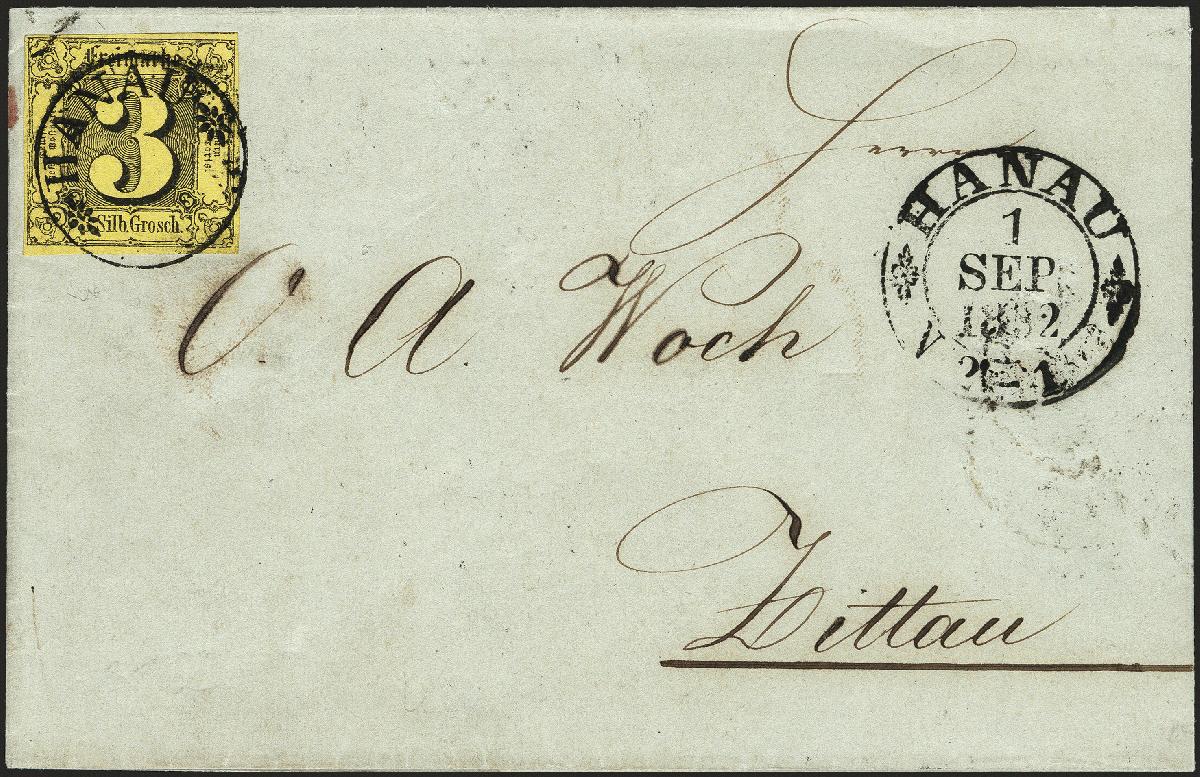 Freimarke
3
Silb. Grosch.
HANAU
Herrn
HANAU
1
SEP
1852
C. A. Woch
Zittau